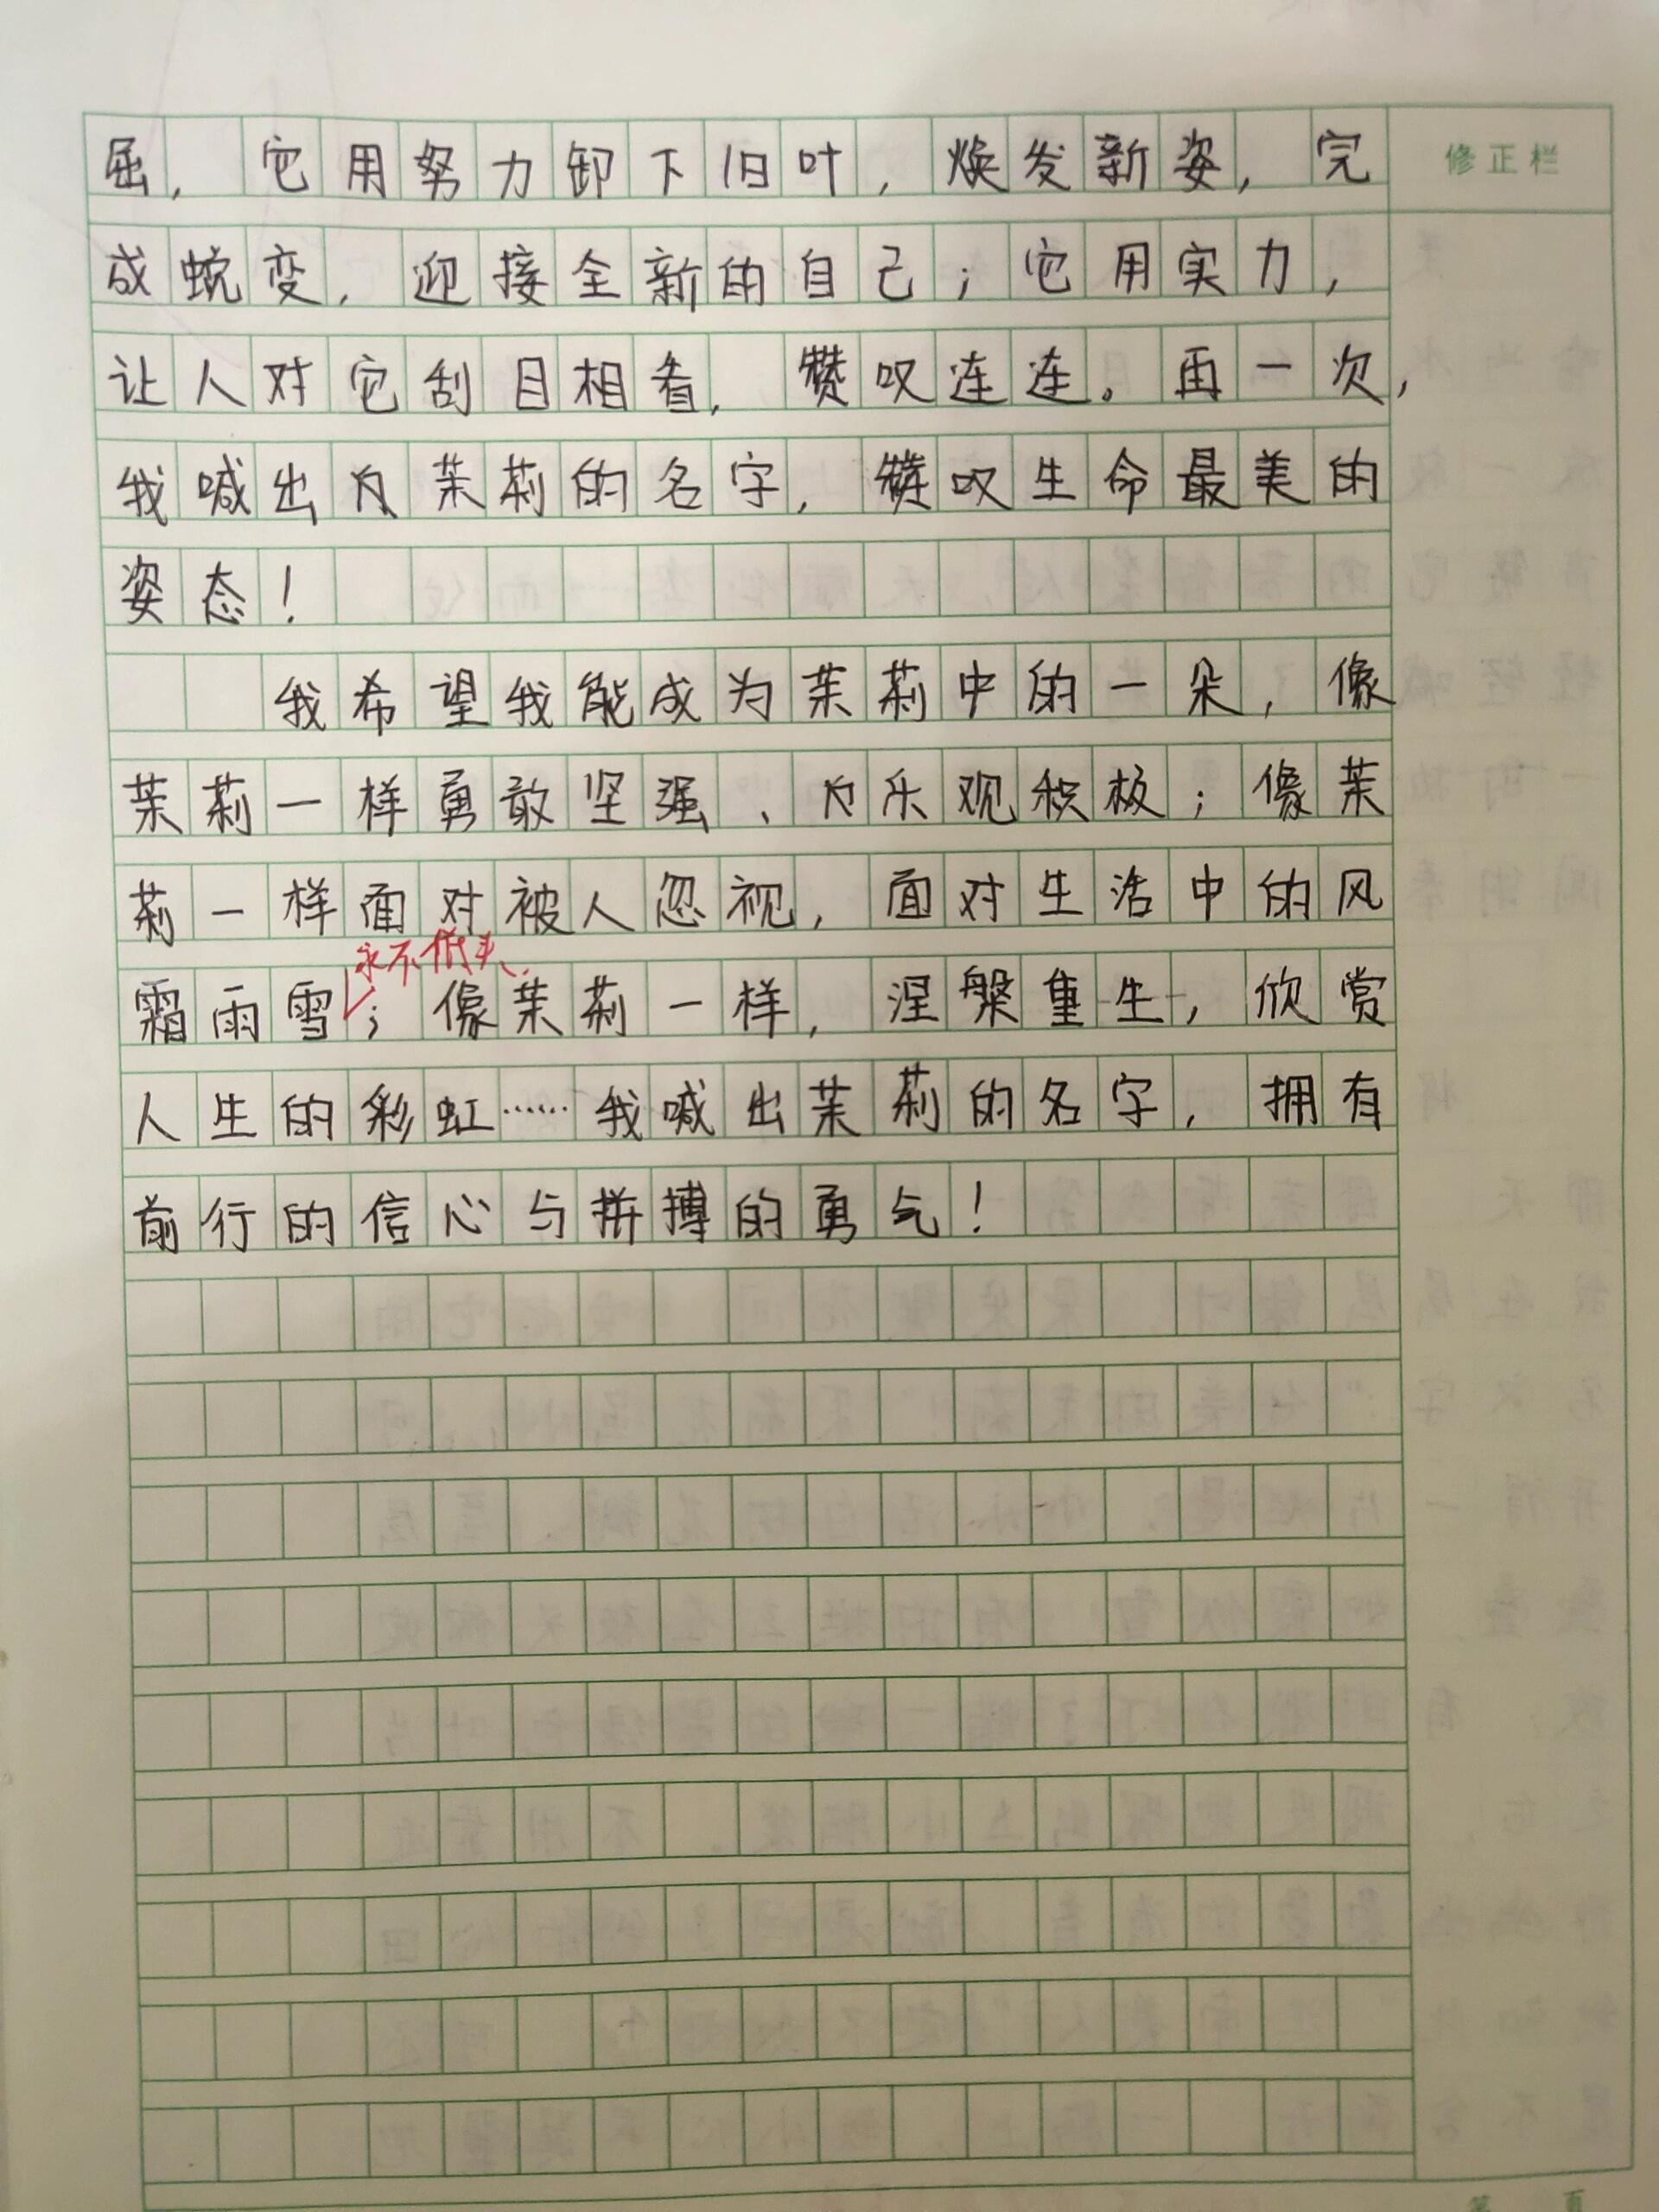 修正栏
屈，它用努力卸下旧叶，焕发新姿，完
成蜕变，迎接全新的自己；它用实力，
让人对它刮目相看，赞叹连连。再一次，
我喊出茉莉的名字，赞叹生命最美的
姿态！
我希望我能成为茉莉中的一朵，像
茉莉一样勇敢坚强、乐观积极；像茉
莉一样面对被人忽视，面对生活中的风
永不低头
霜雨雪；像茉莉一样，涅槃重生，欣赏
人生的彩虹……我喊出茉莉的名字，拥有
前行的信心与拼搏的勇气！
第 页